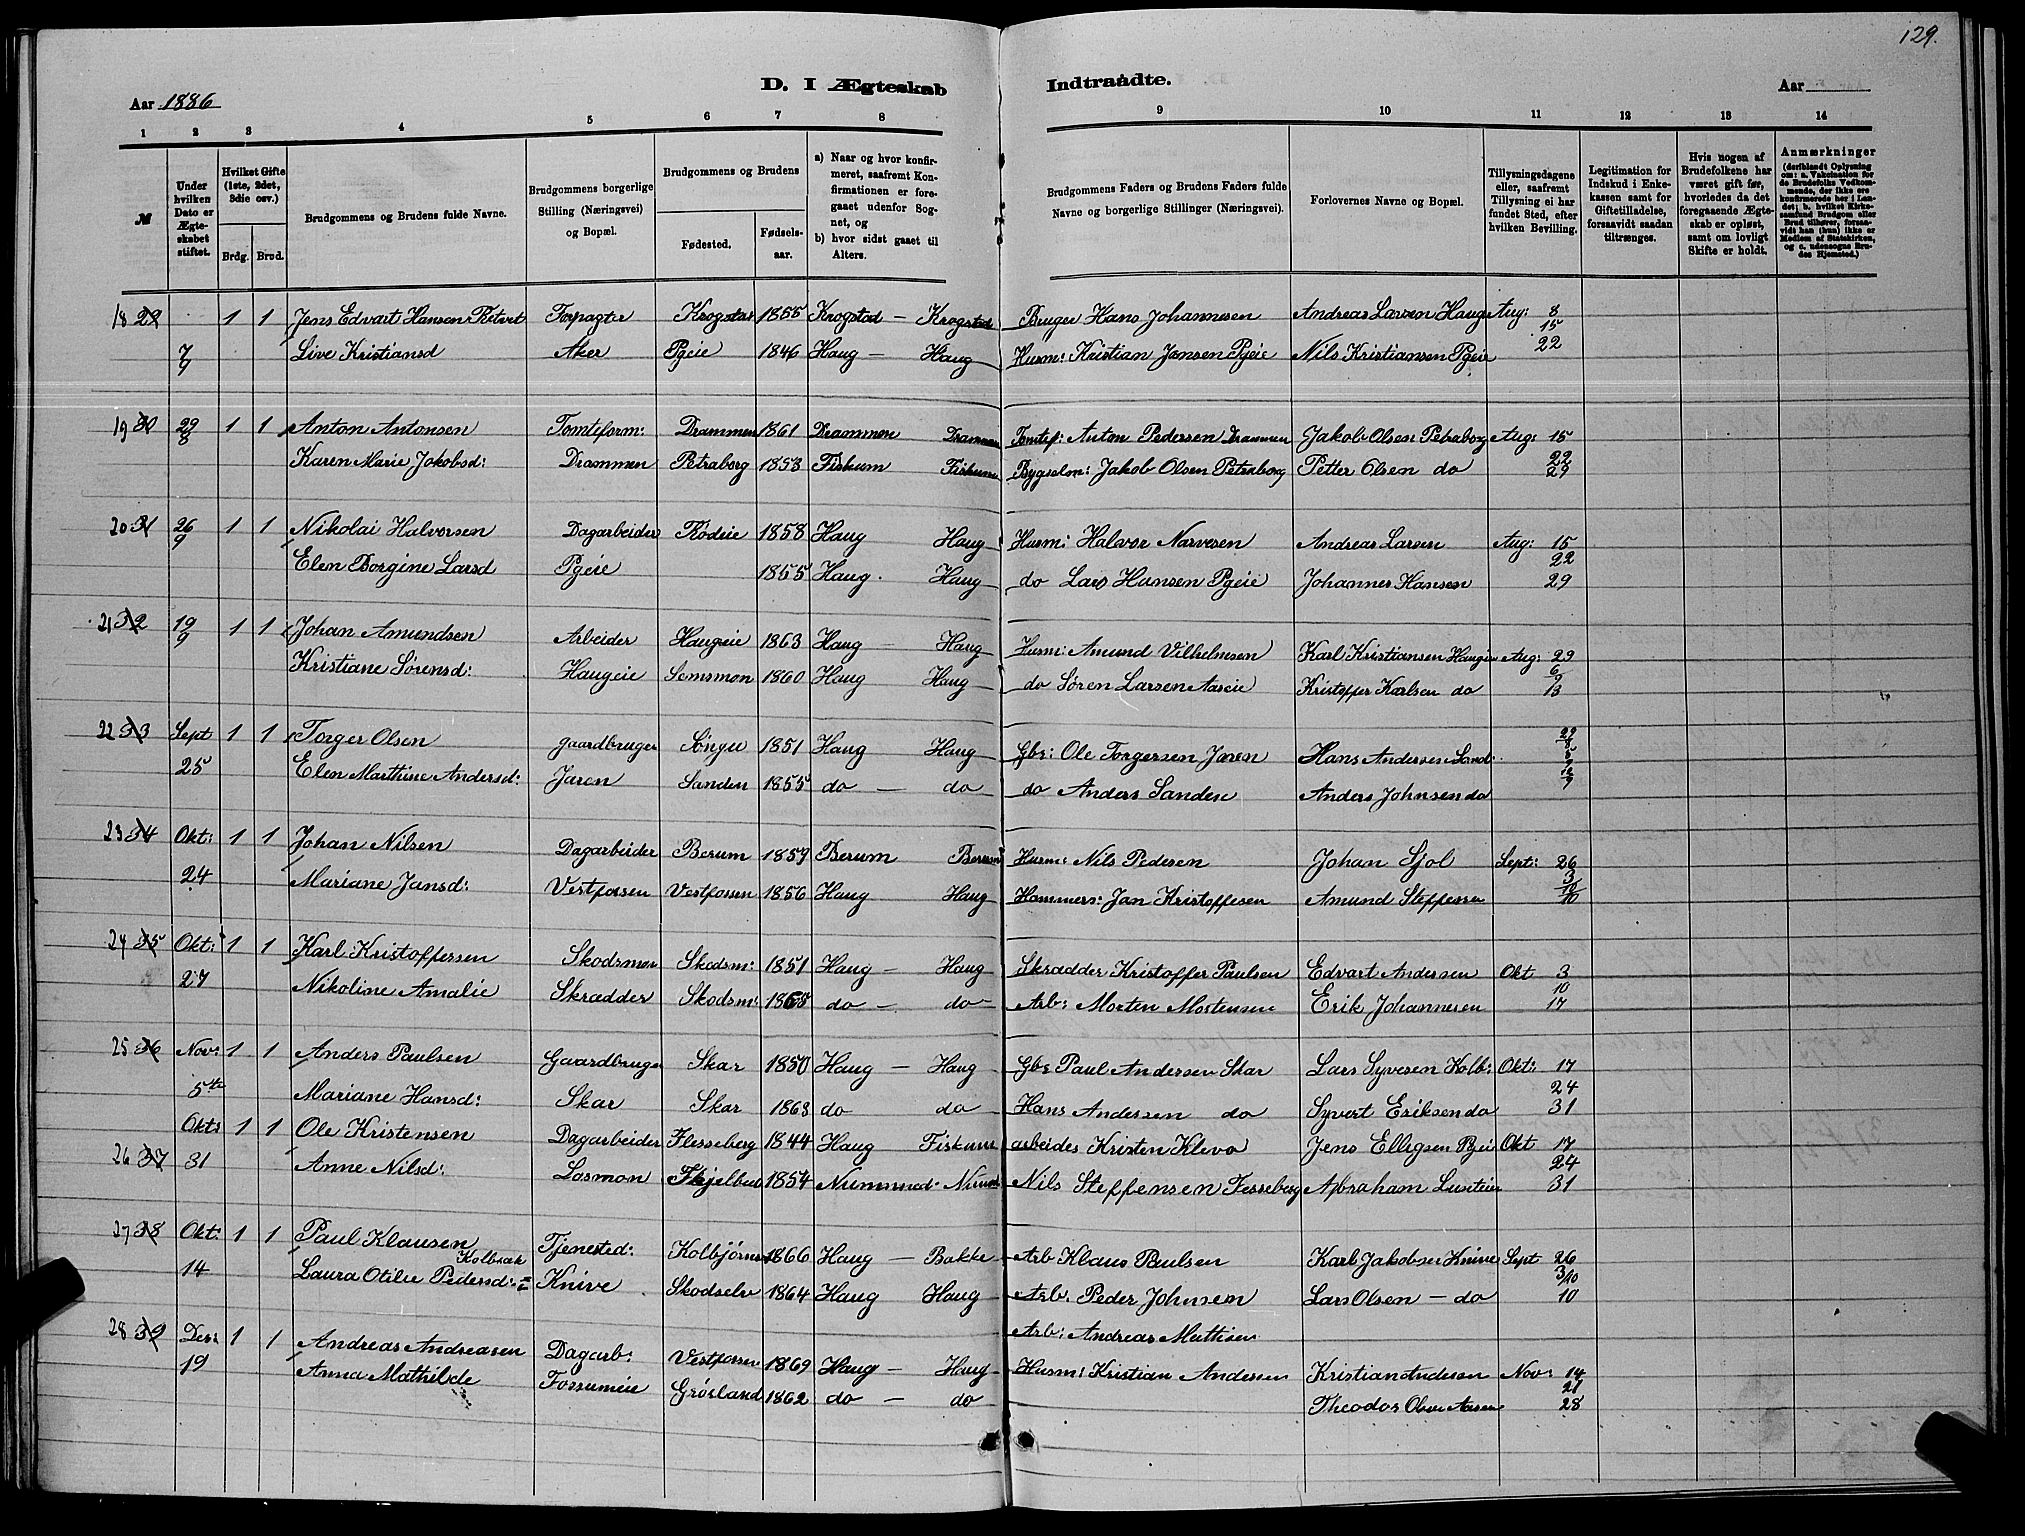 129.
D. I Ægteskab Indtraadte.
Aar 1886 Aar
1 2 3 4 5 6 7 8 9 10 11 12 13 14
№
Under hvilken Dato er Ægteskabet stiftet.
Hvilket Gifte (1ste, 2det, 3die osv.)
Brdg. Brud.
Brudgommens og Brudens fulde Navne.
Brudgommens borgerlige Stilling (Næringsvei) og Bopæl.
Brudgommens og Brudens
Fødested. Fødsels-aar.
a) Naar og hvor konfirmeret, saafremt Konfirmationen er foregaaet udenfor Sognet, og
b) hvor sidst gaaet til Alters.
Brudgommens Faders og Brudens Faders fulde Navne og borgerlige Stillinger (Næringsvei).
Forlovernes Navne og Bopæl.
Tillysningsdagene eller, saafremt Tillysning ei har fundet Sted, efter hvilken Bevilling.
Legitimation for Indskud i Enkekassen samt for Giftetilladelse, forsaavidt saadan tiltrænges.
Hvis nogen af Brudefolkene har været gift før, hvorledes da det foregaaende Ægteskab er opløst, samt om lovligt Skifte er holdt.
Anmærkninger (deriblandt Oplysning om: a. Vakcination for de Brudefolks Vedkommende, der ikke ere konfirmerede her i Landet; b. hvilket Kirkesamfund Brudgom eller Brud tilhører, forsaavidt han (hun) ikke er Medlem af Statskirken, og c. udensogns Brudes Hjemsted.)
18 29 1 1 Jens Edvart Hansen Forpagter Krogstad 1855 Krogstad — Krogstad Bruger Hans Johannesen Andreas Larsen Haug Aug: 8
15
7/9 Live Kristiansd Aker Pgeie 1846 Haug — Haug Husm: Kristian Jensen Pgeie Nils Kristiansen Pgeie 22
19 30 29/8 1 1 Anton Antonsen Tomteform: Drammen 1861 Drammen Drammen Tomtef: Anton Pedersen Drammen Jakob Olsen Petraborg Aug: 15
22
Karen Marie Jakobsd: Drammen Petraborg 1853 Fiskum Fiskum Bygselm: Jakob Olsen Petraborg Petter Olsen do 29
20 31 26/9 1 1 Nikolai Halvorsen Dagarbeider Rødeie 1858 Haug Haug Husm: Halvor Narvesen Andreas Larsen Aug: 15
22
Elen Borgine Larsd Pgeie 1855 Haug Haug do Lars Hansen Pgeie Johannes Hansen 29
21 32 19/9 1 1 Johan Amundsen Arbeider Haugeie 1863 Haug — Haug Husm: Amund Vilhelmsen Karl Kristiansen Haugeie Aug: 29
6/9
Kristiane Sørensd: Haugeie Semsmon 1860 Haug Haug do Søren Larsen Aaseie Kristoffer Karlsen do 13
22 33 Sept 1 1 Torger Olsen Gaardbruger 1851 Haug Haug Gbr: Ole Torgersen Jaren Hans Andersen Sand: 29/8
5/9
25 Elen Marthine Andersd: Jaren Sanden 1855 do — do do Anders Sanden Anders Johnsen do 12/9
23 34 Okt: 1 1 Johan Nilsen Dagarbeider Berum 1857 Berum Berum Husm: Nils Pedersen Johan Sjol Sept: 26
3
24 Mariane Jansd: Vestfossen Vestfossen 1856 Haug Haug Hammers: Jan Kristoffesen Amund Steffensen 10/10
24 35 Okt: 1 1 Karl Kristoffersen Skodsmon Skodsm: 1851 Haug — Haug Skrædder Kristoffer Paulsen Edvart Andersen Okt 3
10
27 Nikoline Amalie Skrædder Skodsm: 1868 do — do Arb: Morten Mortensen Erik Johannesen 17
25 36 Nov: 1 1 Anders Paulsen Gaardbruger Skar 1850 Haug — Haug Gbr Paul Andersen Skar Lars Syvesen Kolb: Okt: 17
24
5te Mariane Hansd: Skar Skar 1863 do do Hans Andersen do Syvert Eriksen do 31
26 37 Okt: 1 1 Ole Kristensen Dagarbeider Flesseberg 1844 Haug Fiskum arbeider Kristen Kleva Jens Elligsen Pgeie Okt 17
24
31 Anne Nilsd: Losmon 1854 Nummed: Numd Nils Steffensen Fesseberg Abraham 31
27 38 Okt: 1 1 Paul Klausen Tjenested: Kolbjørns 1866 Haug — Bakke Arb Klaus Paulsen Karl Jakobsen Knive Sept 26
Kolbræk 3/10
14 Laura Otilie Pedersd: Knive Skodselv 1864 Haug Haug Arb: Peder Johnsen Lars Olsen — do 10
28 39 Des: 1 1 Andreas Andreasen Dagarb: Vestfossen 1869 Haug — Haug Arb: Andreas Mattisen
19 Anna Mathilde Fossumeie Grøsland 1862 do — do Husm: Kristian Andersen Kristian Andersen Nov: 14
21
Theodor Olsen Aasen 28